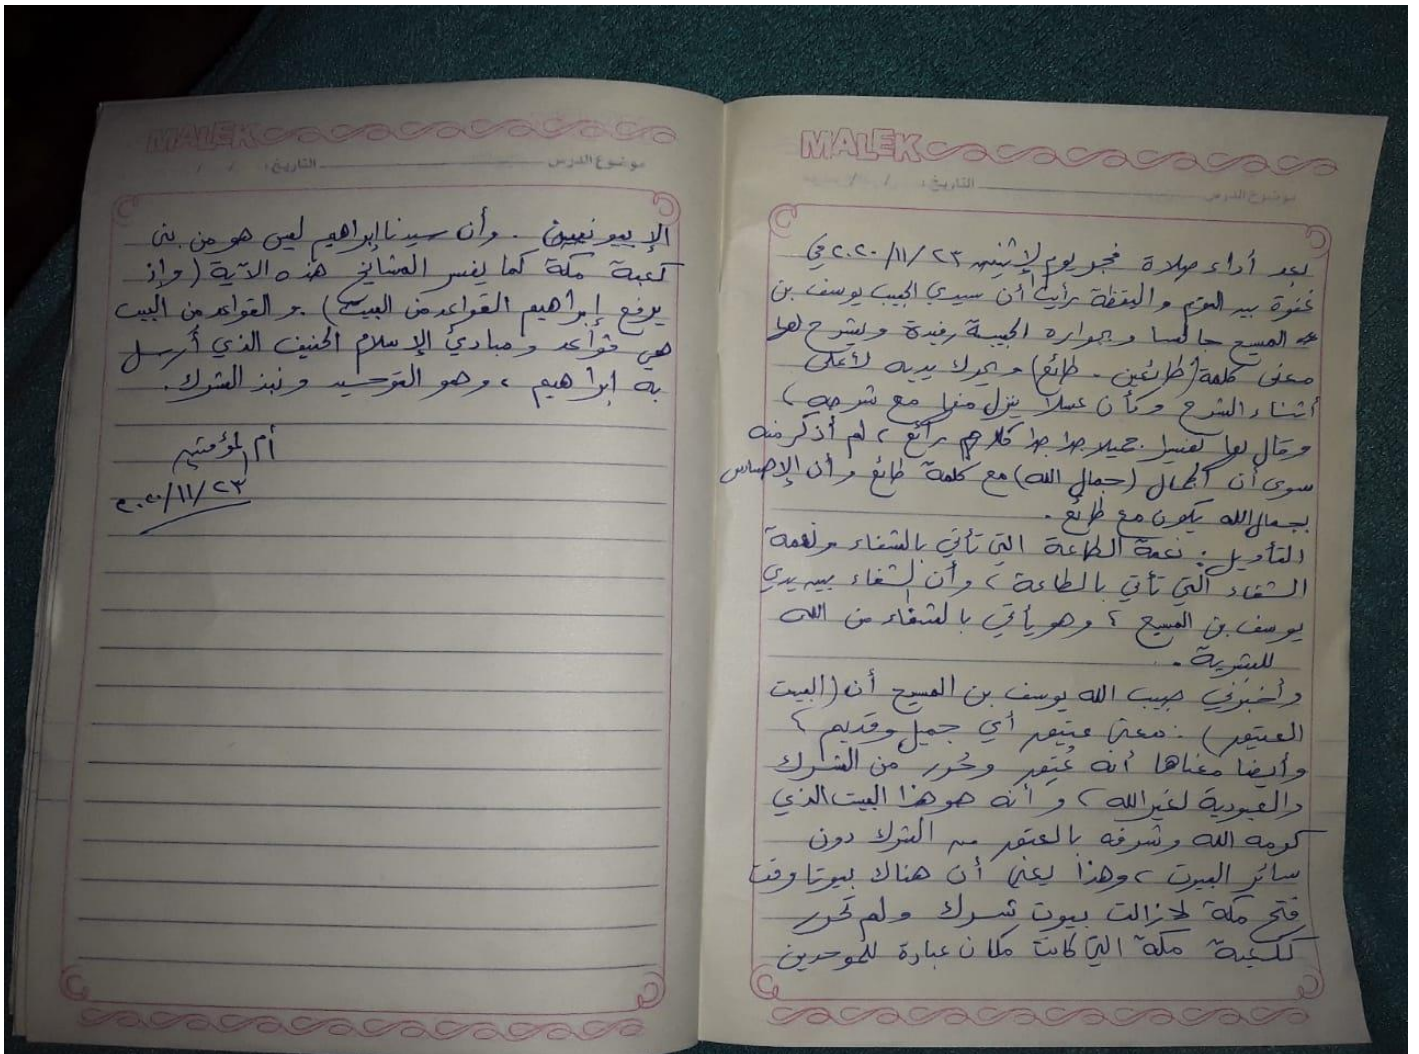 MALEK
موضوع الدرس التاريخ : / /
بعد أداء صلاة فجر يوم الإثنين ٢٣/١١/٢٠٢٠ في
غفوة بين النوم واليقظة رأيت أن سيدي الحبيب يوسف بن
المسيح جالسا وبجواره الحبيبة رفيدة ويشرح لها
معنى كلمة (طائعين - طائع) ويحرك يديه لأعلى
أثناء الشرح وكأن عسلا ينزل منها مع شرحه ،
وقال لها تفسيرا جميلا جدا جدا كلام رائع ، لم أذكر منه
سوى أن الجمال (جمال الله) مع كلمة طائع وأن الإحساس
بجمال الله يكون مع طائع .
التأويل : نعمة الطاعة التي تأتي بالشفاء ونعمة
الشفاء التي تأتي بالطاعة ، وأن الشفاء بين يدي
يوسف بن المسيح ، وهو يأتي بالشفاء من الله
للبشرية .
وأخبرني حبيب الله يوسف بن المسيح أن (البيت
العتيق) : معنى عتيق أي جميل وقديم ،
وأيضا معناها أنه عُتِق وحُرر من الشرك
والعبودية لغير الله ، وأنه هو هذا البيت الذي
كرمه الله وشرفه بالعتق من الشرك دون
سائر البيوت ، وهذا يعني أن هناك بيوتا وقت
فتح مكة لازالت بيوت شرك ولم تحرر
ككعبة مكة التي كانت مكان عبادة للموحدين
MALEK
موضوع الدرس التاريخ : / /
الإبيونيين . وأن سيدنا إبراهيم ليس هو من بنى
كعبة مكة كما يفسر المشايخ هذه الآية (وإذ
يرفع إبراهيم القواعد من البيت) . والقواعد من البيت
هي قواعد ومبادئ الإسلام الحنيف الذي أرسل
به إبراهيم ، وهو التوحيد ونبذ الشرك .
أم المؤمنين
٢٣/١١/٢٠٢٠